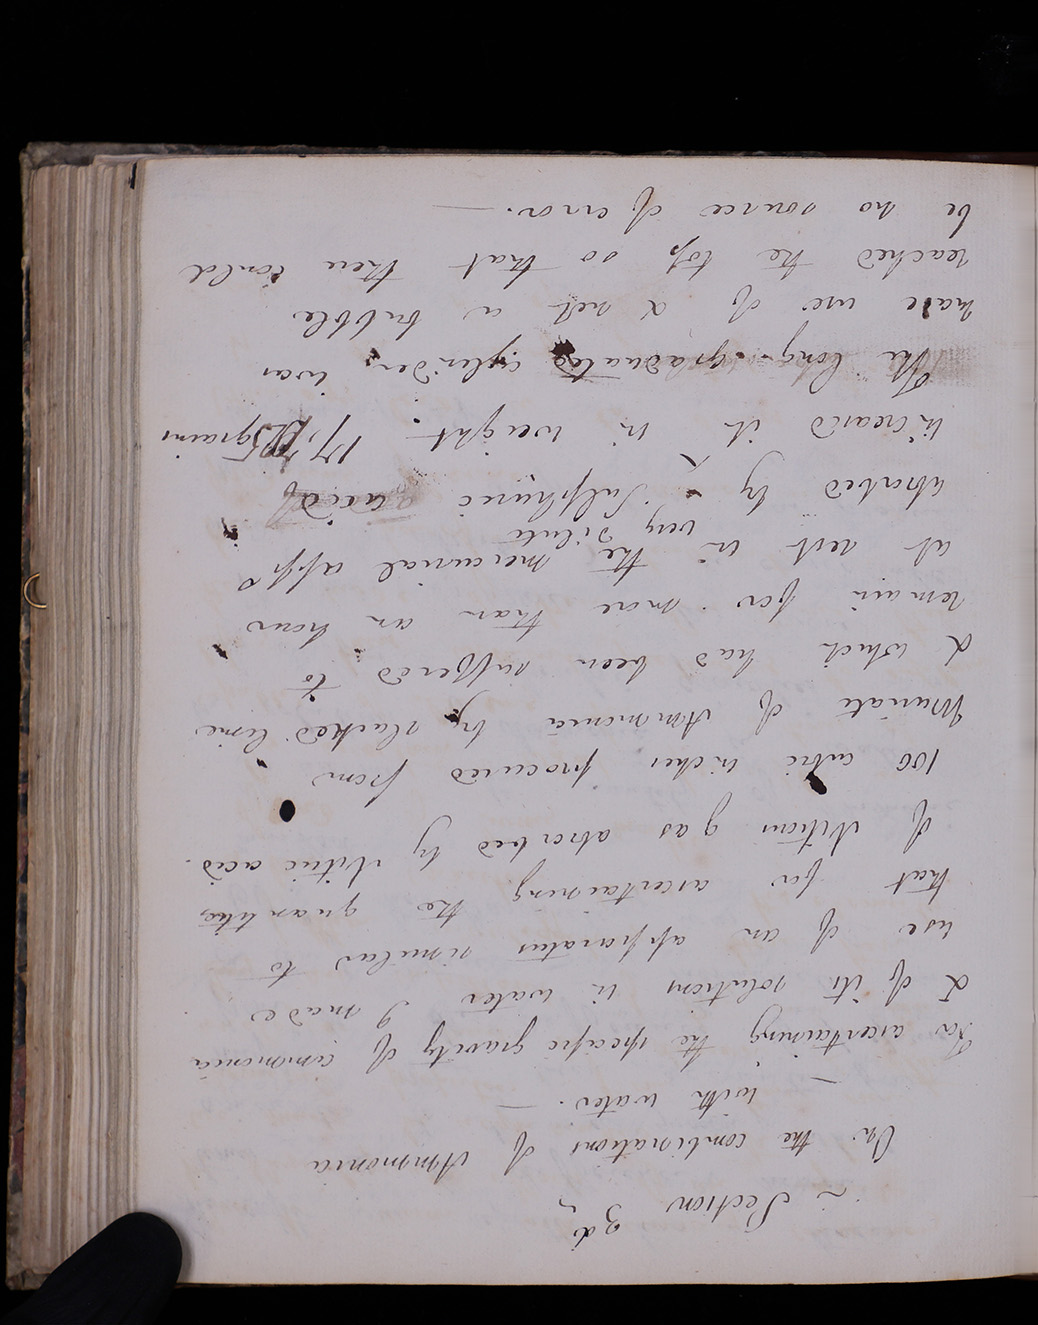 ~ Section 3d
On the combinations of Ammonia
with water. —
For ascertaining the specific gravity of ammonia
& of its solutions in water I made
use of an apparatus similar to
that for ascertaining the quantities
of Nitrous gas absorbed by Nitric acid.
100 cubic inches procured from
Muriate of Ammonia by slacked lime
& which had been suffered to
remain for more than an hour
at rest in the mercurial apps
very dilute
absorbed by Sulphuric acid
increased it in weight grains
The long graduated cylinder, was
made use of & not a bubble
reached the top so that there could
be no source of error. —